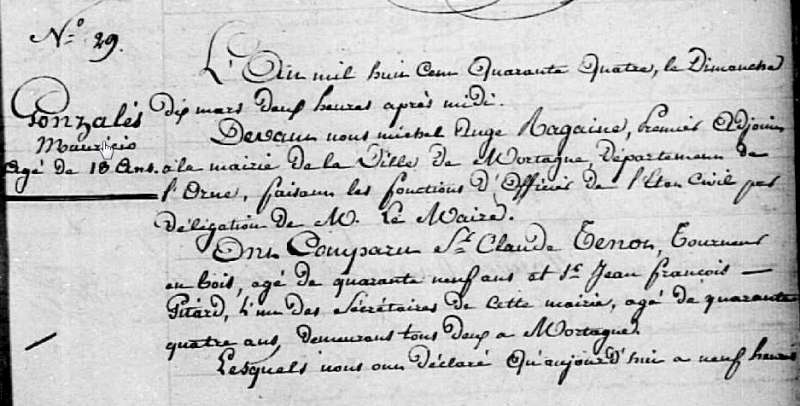 N.º 29.
Gonzalès
Mauricio
agé de 18 Ans.
L'An mil huit Cent Quarante Quatre, le Dimanche
dix mars deux heures après midi.
Devant nous michel Ange Ragaine, Premier Adjoint
à la mairie de la Ville de Mortagne, Département de
l'Orne, faisant les fonctions d'Officier de l'Etat Civil par
déligation de M. Le Maire.
Ont Comparu S.r Claude Tenon, Tourneur
en bois, agé de quarante neuf ans et S.r Jean françois —
Pitard, l'un des Sécrétaires de cette mairie, agé de quarante
quatre ans, demeurans tous deux a Mortagne.
Lesquels nous ont déclaré Qu'aujourd'hui a neuf heures